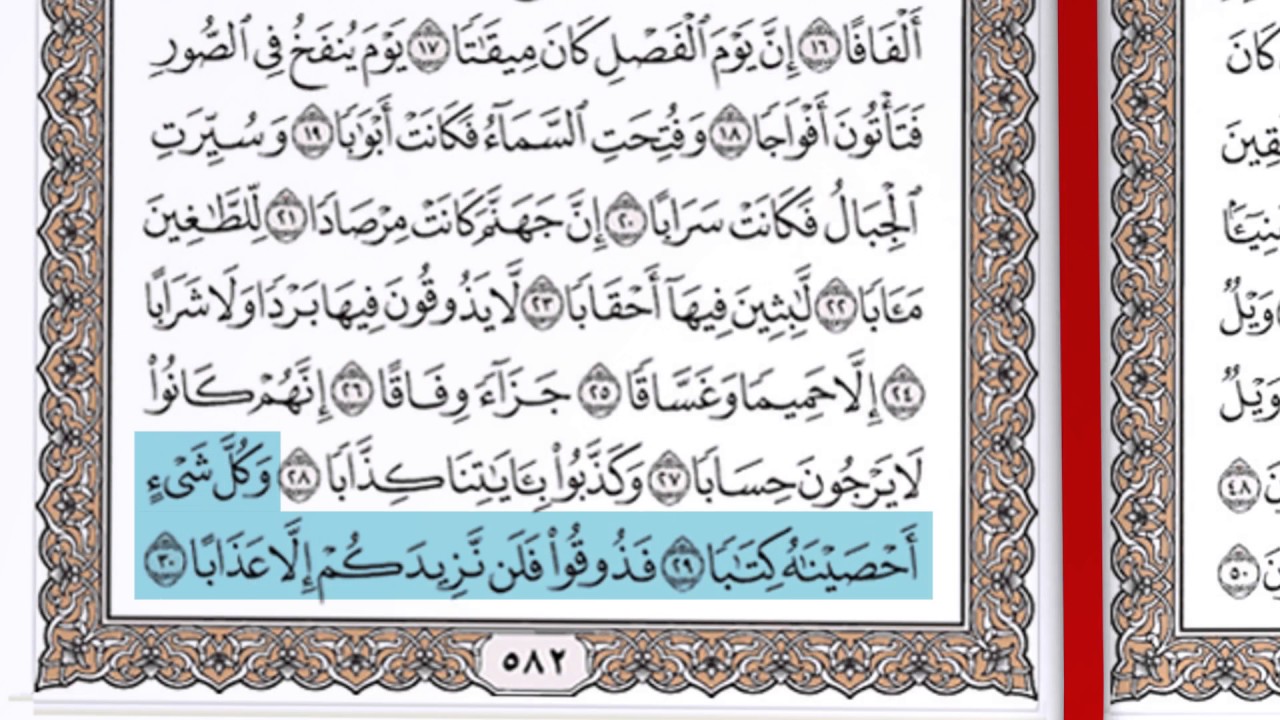 أَلْفَافًا ١٦ إِنَّ يَوْمَ ٱلْفَصْلِ كَانَ مِيقَٰتًا ١٧ يَوْمَ يُنفَخُ فِى ٱلصُّورِ
فَتَأْتُونَ أَفْوَاجًا ١٨ وَفُتِحَتِ ٱلسَّمَآءُ فَكَانَتْ أَبْوَٰبًا ١٩ وَسُيِّرَتِ
ٱلْجِبَالُ فَكَانَتْ سَرَابًا ٢٠ إِنَّ جَهَنَّمَ كَانَتْ مِرْصَادًا ٢١ لِّلطَّٰغِينَ
مَـَٔابًا ٢٢ لَّٰبِثِينَ فِيهَآ أَحْقَابًا ٢٣ لَّا يَذُوقُونَ فِيهَا بَرْدًا وَلَا شَرَابًا
٢٤ إِلَّا حَمِيمًا وَغَسَّاقًا ٢٥ جَزَآءً وِفَاقًا ٢٦ إِنَّهُمْ كَانُوا۟
لَا يَرْجُونَ حِسَابًا ٢٧ وَكَذَّبُوا۟ بِـَٔايَٰتِنَا كِذَّابًا ٢٨ وَكُلَّ شَىْءٍ
أَحْصَيْنَٰهُ كِتَٰبًا ٢٩ فَذُوقُوا۟ فَلَن نَّزِيدَكُمْ إِلَّا عَذَابًا ٣٠
٥٨٢
كَانَ
وَيْلٌ
وَيْلٌ
٤٨
٥٠